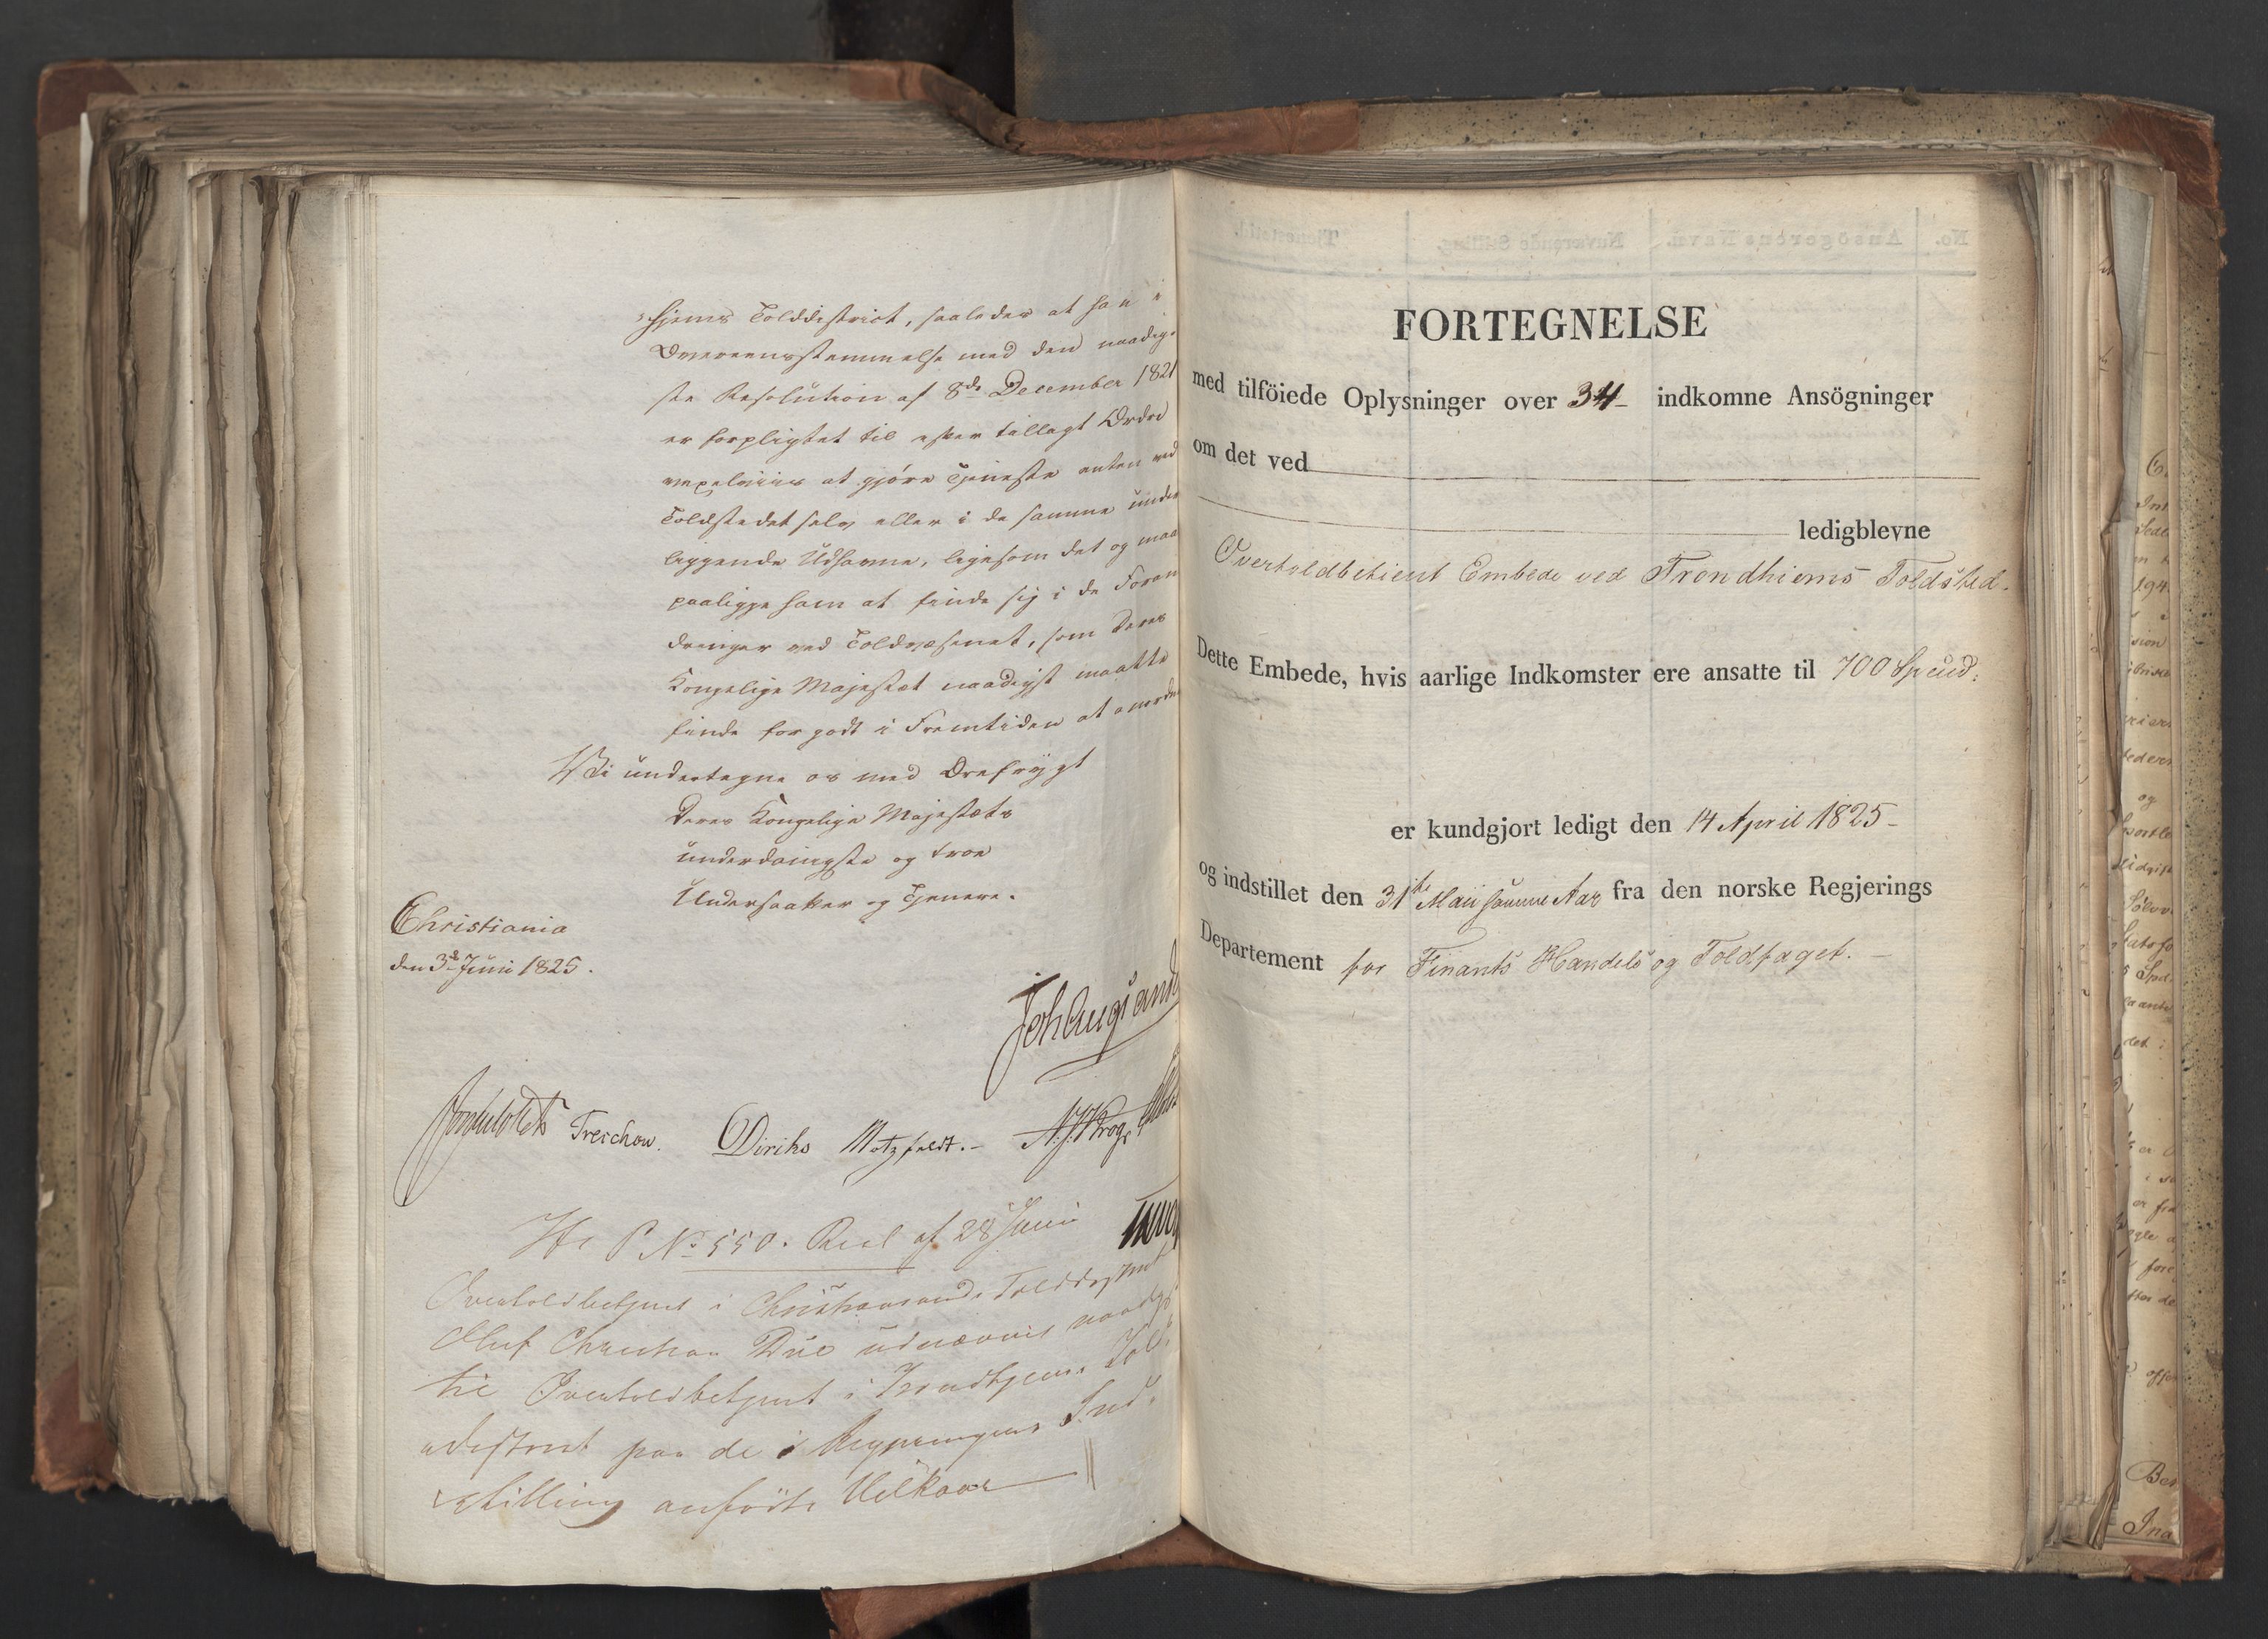 hjems Tolddistrict, saaledes at han i
Overeensstemmelse med den naadig-
ste Resolution af 8de December 1821
er forpligtet til efter tillagt Ordre
vexelviis at gjøre Tjeneste enten ved
Toldstedet selv eller i de samme under
liggende Udhavne, ligesom det og maa
paaligge ham at finde sig i de Foran
dringer ved Toldvæsenet, som Deres
Kongelige Majestæt naadigst maatte
finde for godt i Fremtiden at anordne
Vi undertegne os med Ærefrygt
Deres Kongelige Majestæts
underdanigste og troe
Undersaatter og Tjenere.
Christiania
den 3de Juni 1825.
Joh Aug Sand
Treschow. Diriks Motzfeldt. -
P No 550. Resol af 28 Juni
Overtoldbetjent i Christiansands Tolddistrict
Oluf Christian Due udnævnes naadigst
til Overtoldbetjent i Trondhjems Told
district paa de i Regjeringens Ind-
stilling anførte Vilkaar
No. Ansögerens Navn. Nuværende Stilling. Tjenestetid.
FORTEGNELSE
med tilföiede Oplysninger over 34 indkomne Ansögninger
om det ved
ledigblevne
Overtoldbetient Embede ved Trondhiems Toldsted.
Dette Embede, hvis aarlige Indkomster ere ansatte til 700 Spend:
er kundgjort ledigt den 14 April 1825 -
og indstillet den 31te Maii samme Aar fra den norske Regjerings
Departement for Finants Handels og Toldfaget. -